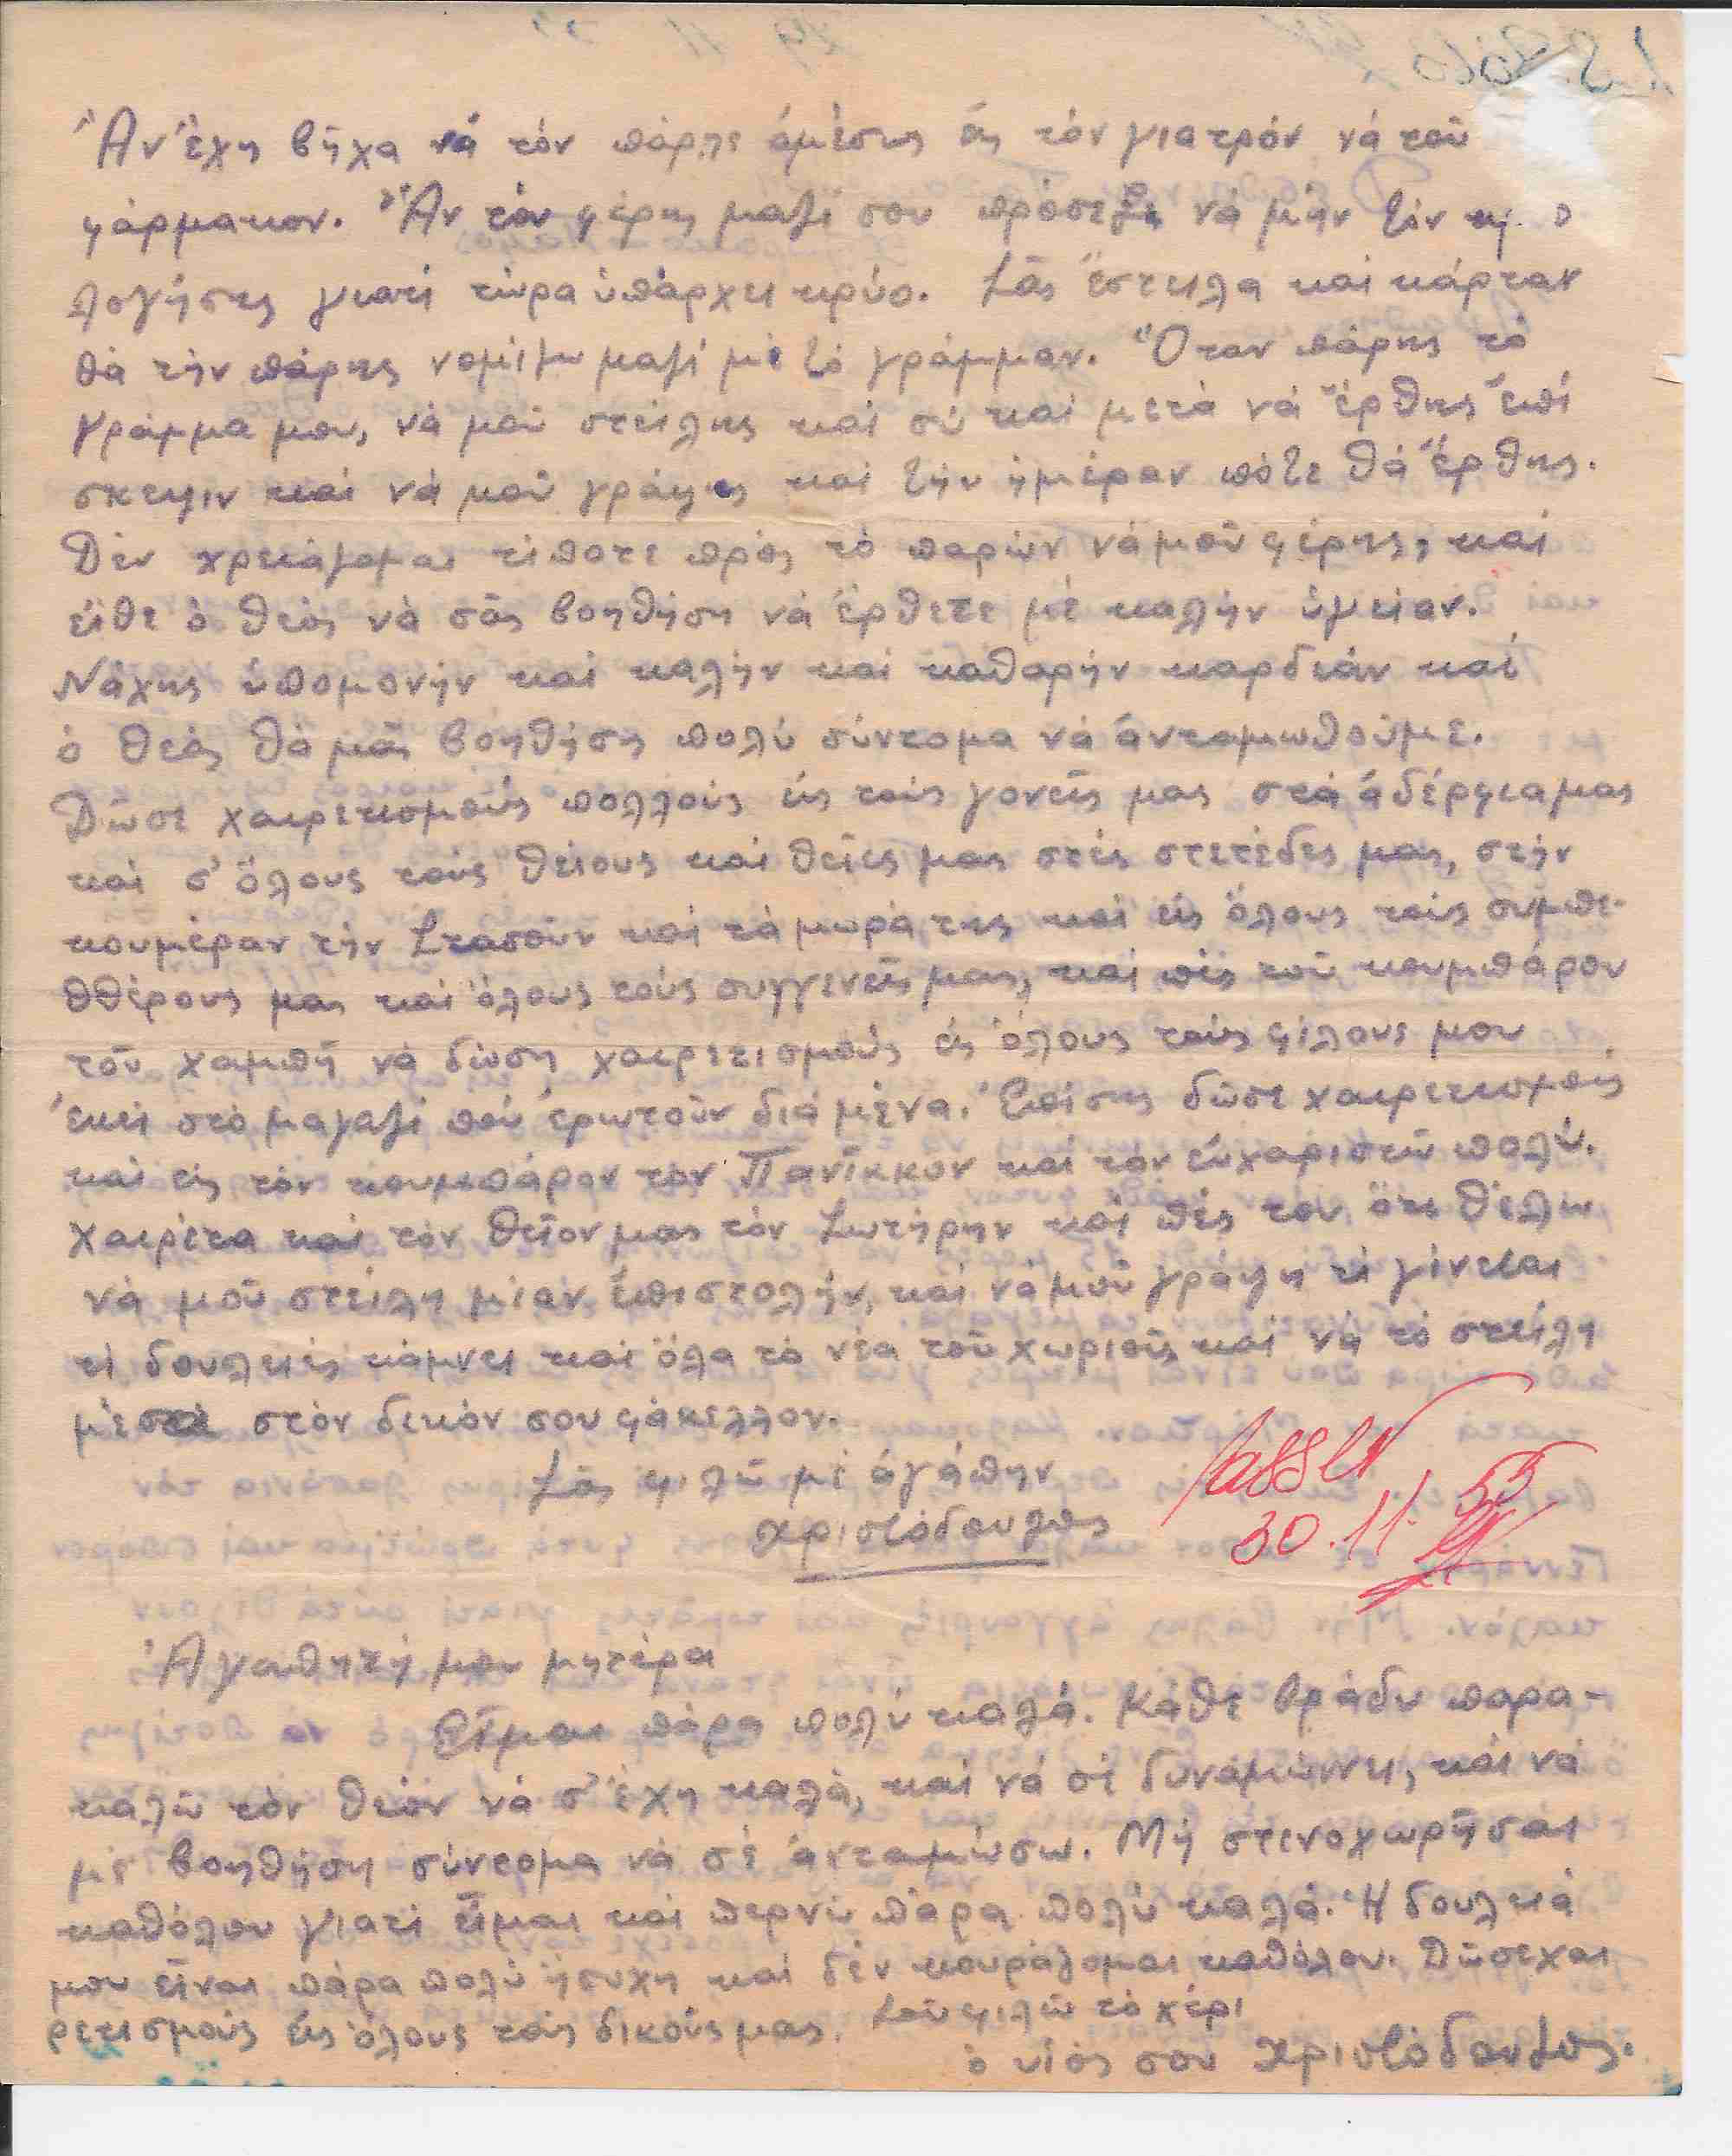 Ἄν ἔχη βήχα νά τόν πάρης ἀμέσως εἰς τόν γιατρόν νά τοῦ
φάρμακον. Ἄν τόν φέρης μαζί σου πρόσεξε νά μήν τόν κρ. ο
λογήσης γιατί τώρα ὑπάρχει κρύο. Σᾶς ἔστειλα καί κάρταν
θά τήν πάρης νομίζω μαζί μέ τό γράμμαν. Ὅταν πάρης τό
γράμμα μου, νά μοῦ στείλης καί σύ καί μετά νά ἔρθης ἐπί
σκεψιν καί νά μοῦ γράψης καί τήν ἡμέραν πότε θά ἔρθης.
Δέν χρειάζομαι τίποτε πρός τό παρών νά μοῦ φέρης, καί
εἴθε ὁ θεός νά σᾶς βοηθήση νά ἔρθετε μέ καλήν ὑγείαν.
Νάχης ὑπομονήν καί καλήν καί καθαρήν καρδιάν καί
ὁ θεός θά μᾶς βοηθήση πολύ σύντομα νά ἀνταμωθοῦμε.
Δῶσε χαιρετισμούς πολλούς εἰς τούς γονεῖς μας στά ἀδέρφια μας
καί σ' ὅλους τούς θείους καί θεῖες μας στές στετέδες μας, στήν
κουμέραν τήν Στασοῦν καί τά μωρά της καί εἰς ὅλους τούς συμπε-
θθέρους μας καί ὅλους τούς συγγενεῖς μας, καί πές τοῦ κουμπάρου
τοῦ χαμπῆ νά δώση χαιρετισμούς εἰς ὅλους τούς φίλους μου
ἐκεῖ στό μαγαζί πού ἐρωτοῦν διά μένα. Ἐπίσης δῶσε χαιρετισμούς
καί εἰς τόν κουμπάρον τόν Πανίκκον καί τόν εὐχαριστῶ πολύ.
Χαιρέτα καί τόν θεῖον μας τόν Σωτήρην καί πές του ὅτι θέλω
νά μοῦ στείλη μίαν ἐπιστολήν, καί νά μοῦ γράψη τί γίνεται
τί δουλειές κάμνει καί ὅλα τά νέα τοῦ χωριοῦ καί νά τό στείλη
μέσα στόν δικόν σου φάκελλον.
Σᾶς φιλῶ μέ ἀγάπην
Χριστόδουλος
Passed
30.11.55
Ἀγαπητή μου μητέρα
Εἶμαι πάρα πολύ καλά. Κάθε βράδυ παρα-
καλῶ τόν θεόν νά σ' ἔχη καλά, καί νά σέ δυναμώνει, καί νά
μέ βοηθήση σύντομα νά σέ ἀνταμώσω. Μή στενοχωρῆσαι
καθόλου γιατί εἶμαι καί περνῶ πάρα πολύ καλά. Ἡ δουλειά
μου εἶναι πάρα πολύ ἥσυχη καί δέν κουράζομαι καθόλου. Δῶσε χαι
ρετισμούς εἰς ὅλους τούς δικούς μας. Σοῦ φιλῶ τό χέρι
ὁ υἱός σου Χριστόδουλος.